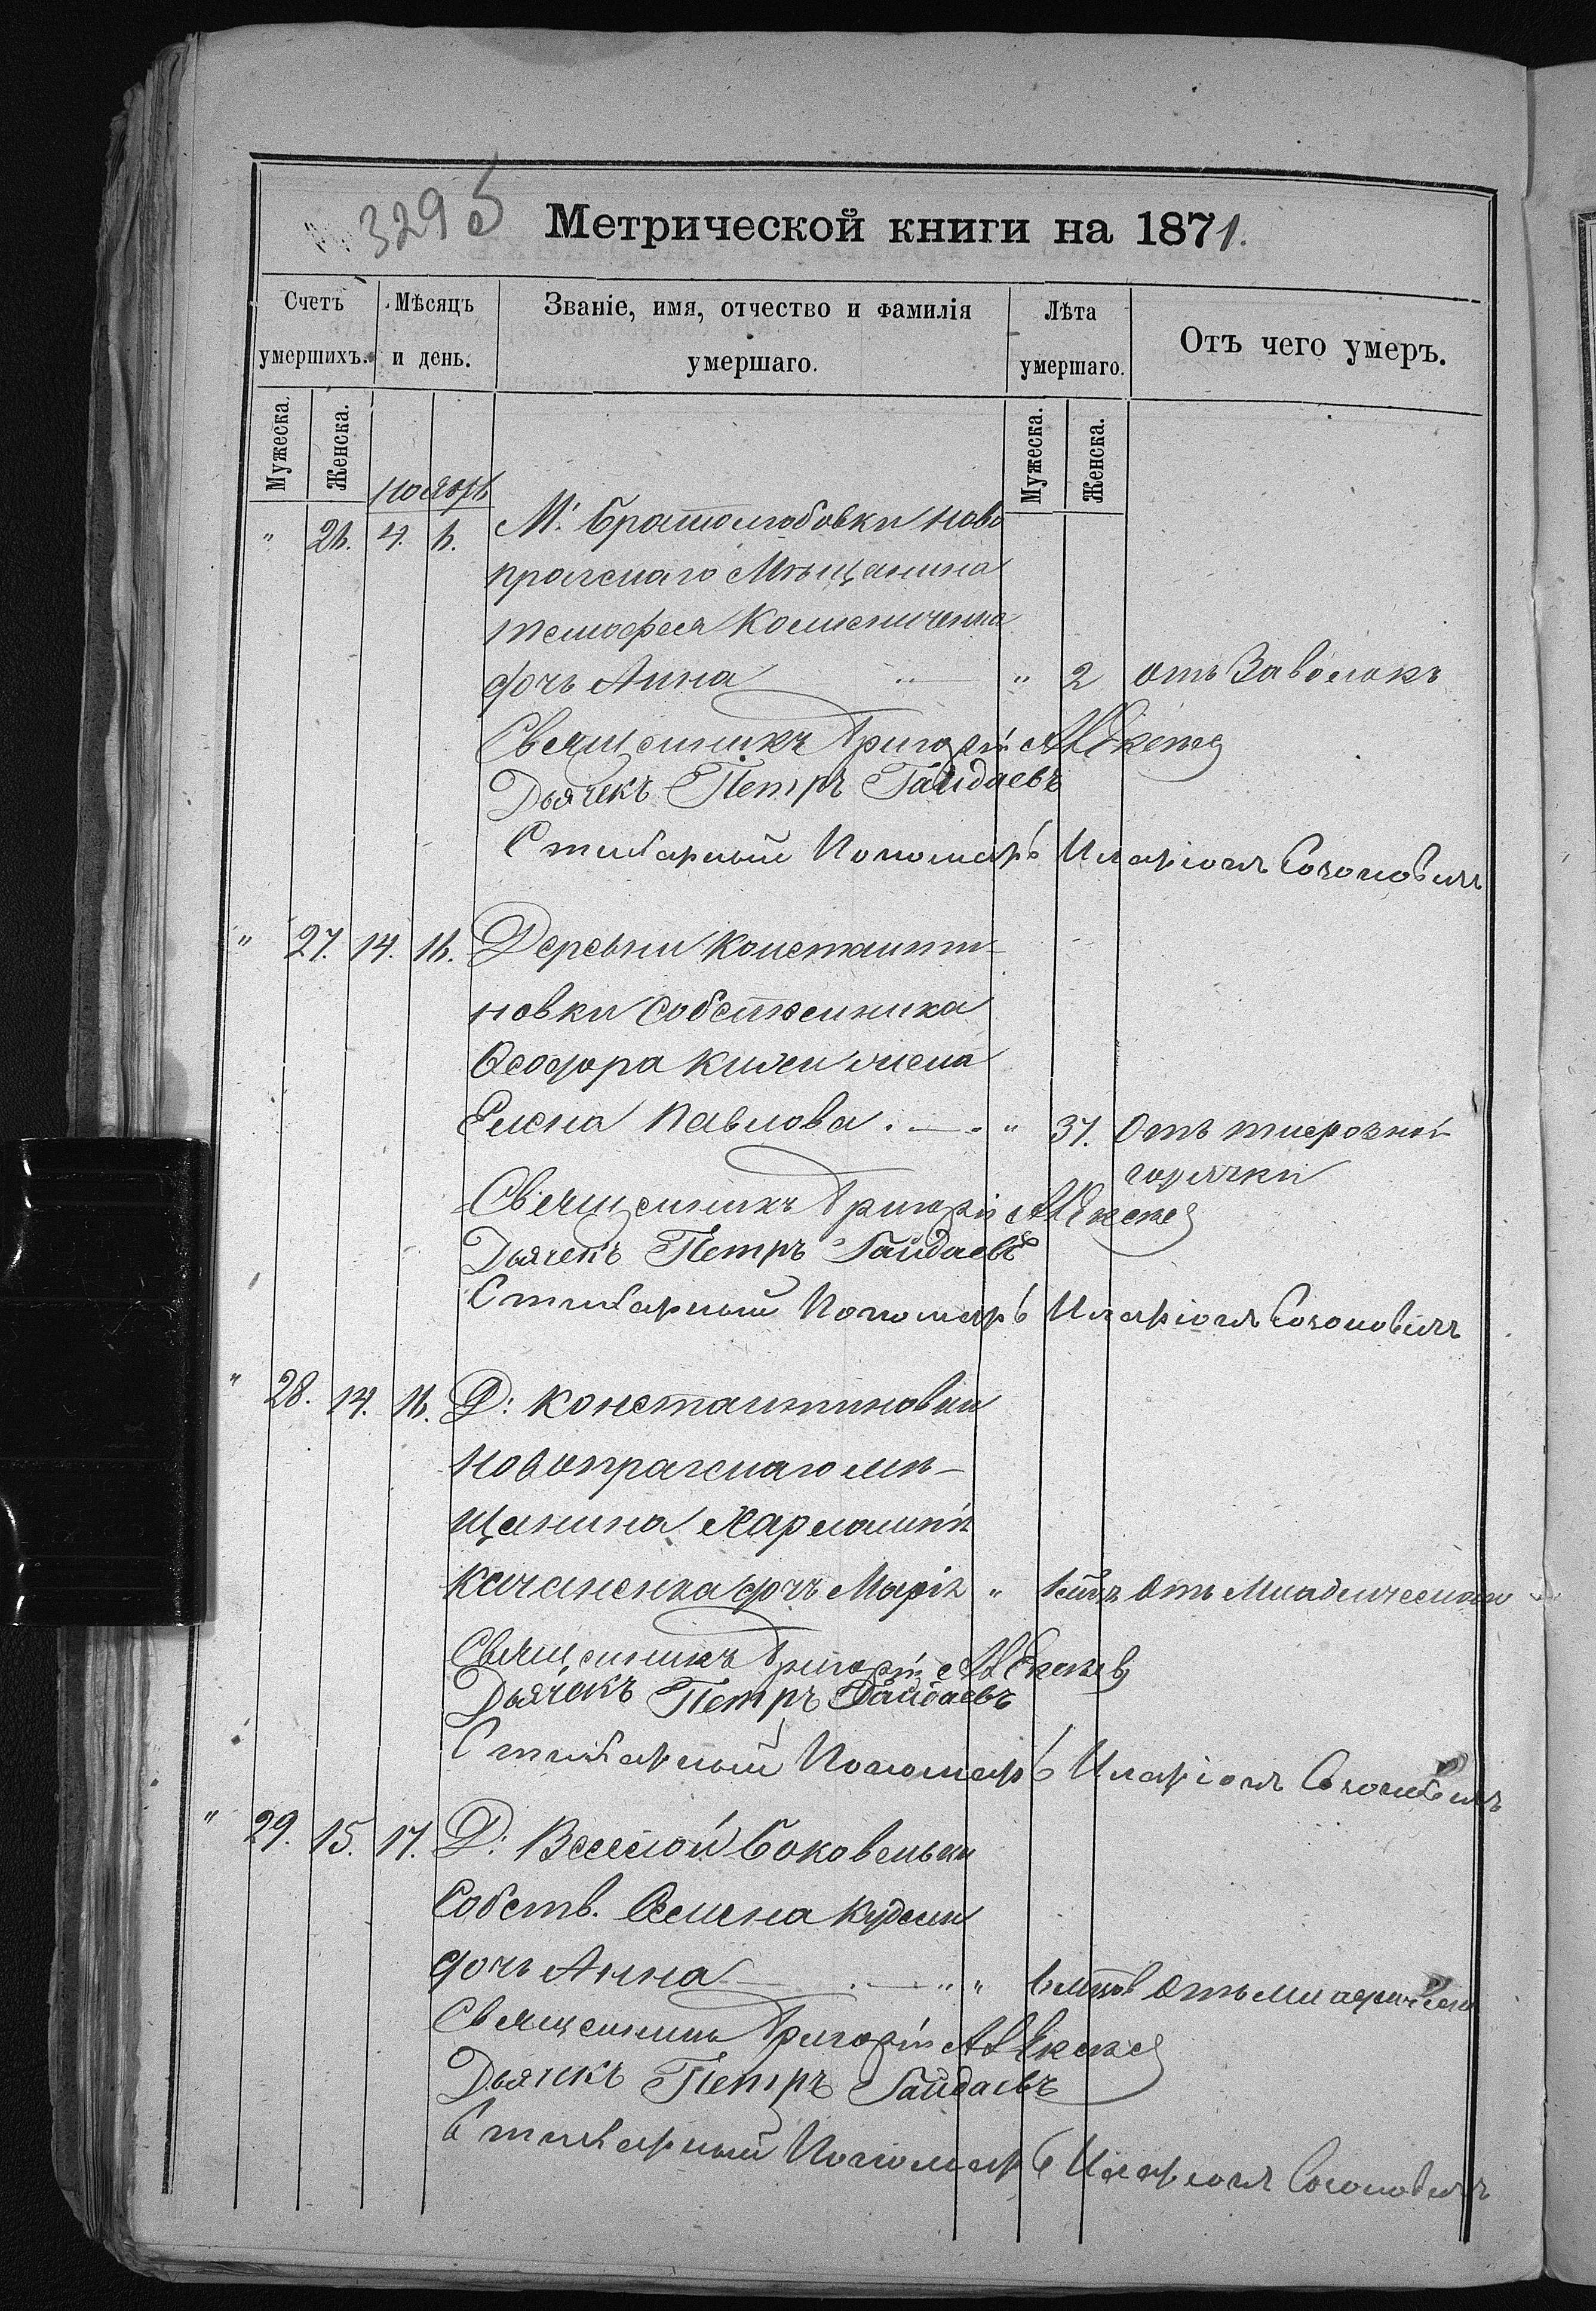 329 б Метрической книги на 1871.
Счетъ умершихъ. Мѣсяцъ и день. Званіе, имя, отчество и фамилія умершаго. Лѣта умершаго. Отъ чего умеръ.
Мужеска. Женска. Мужеска. Женска.
Ноябрь
" 26. 4. 6. М. Братолюбовки ново
прагскаго Мѣщанина
дочь Анна " 2 отъ Заволокъ
Священникъ Григорій
Дьячекъ Петръ Гайдаевъ
Стихарный Пономарь Иларіонъ Созоновичъ
" 27. 14. 16. Деревни Константи-
новки собственника
Ѳеодора жена
Елена Павлова. " 37. Отъ тифозной
горячки
Священникъ Григорій
Дьячекъ Петръ Гайдаевъ
Стихарный Пономарь Иларіонъ Созоновичъ
" 28. 14. 16. Д: Константиновки
Новопрагскаго мѣ-
щанина Харлампія
дочь Марія " Отъ Младенческаго
Священникъ Григорій
Дьячекъ Петръ Гайдаевъ
Стихарный Пономарь Иларіонъ Созоновичъ
" 29. 15. 17. Д: Веселой Боковеньки
Собств. Семена
дочь Анна " Отъ младенческаго
Священникъ Григорій
Дьячекъ Петръ Гайдаевъ
Стихарный Пономарь Иларіонъ Созоновичъ